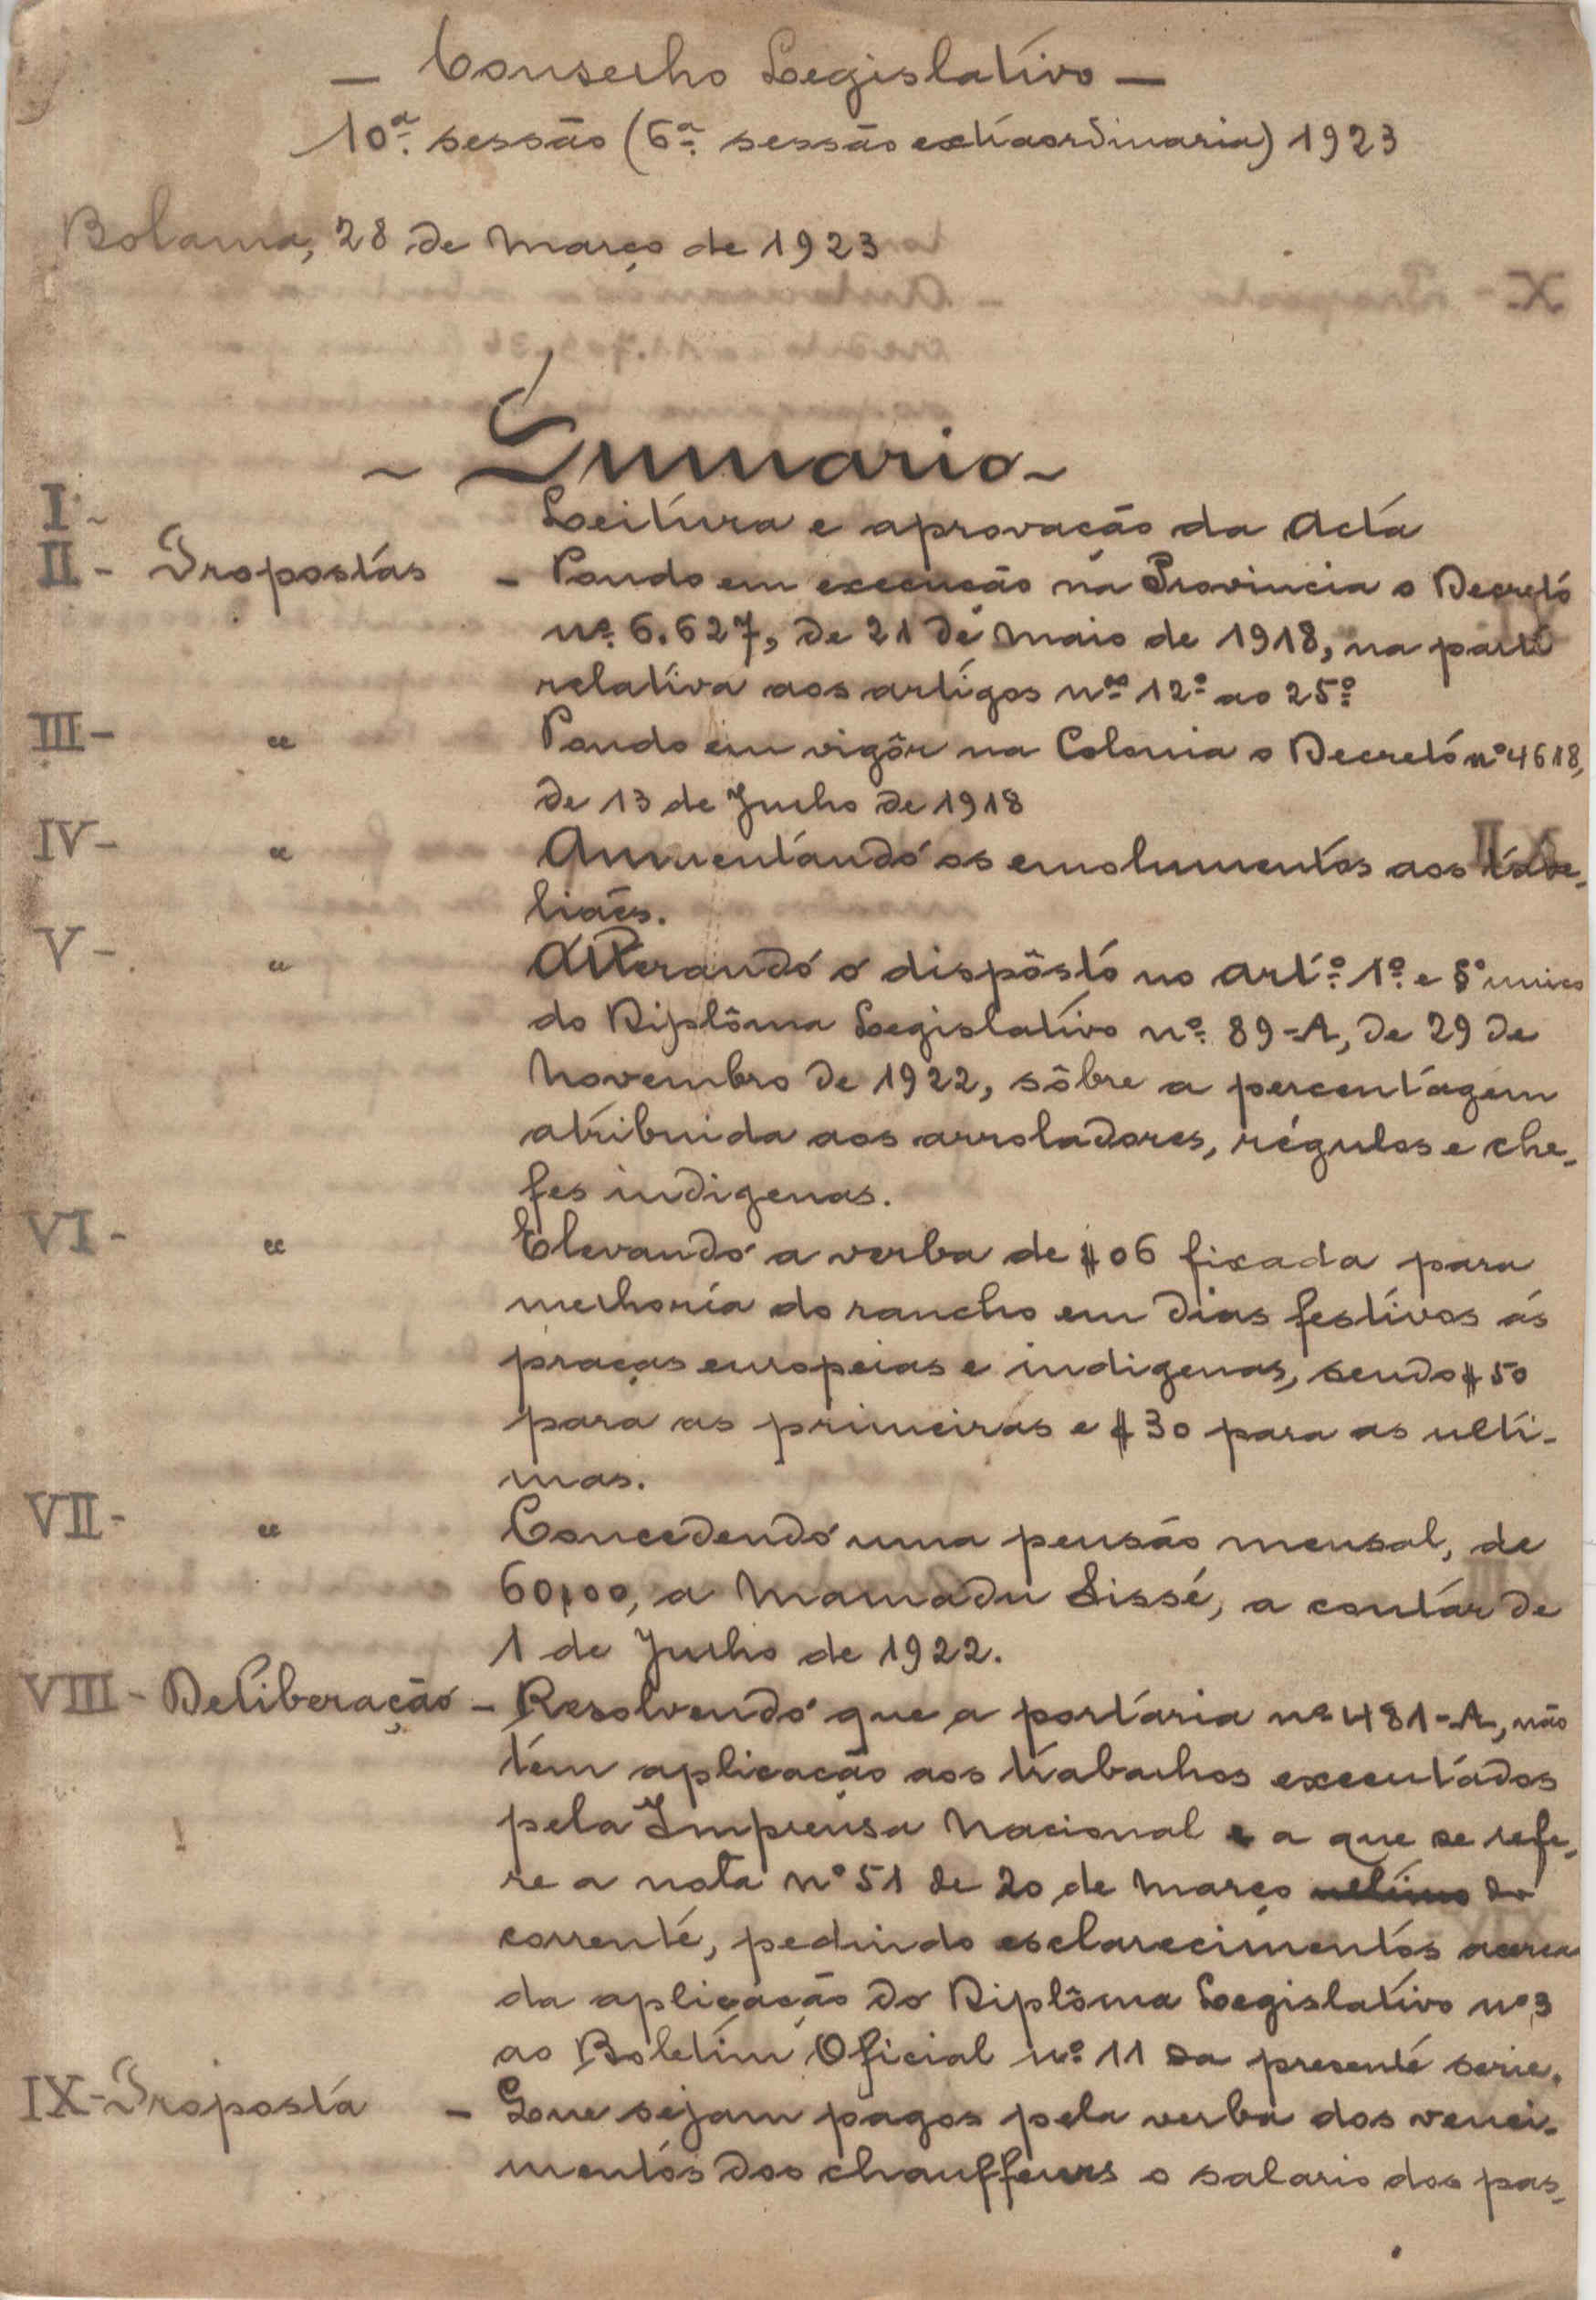 — Conselho Legislativo —
10ª sessão (6ª sessão extraordinaria) 1923
Bolama, 28 de Março de 1923
~ Summario ~
I - Leitura e aprovação da Acta
II - Propostas - Pondo em execução na Provincia o Decreto
nº 6.627, de 21 de Maio de 1918, na parte
relativa aos artigos nos 12º ao 25º
III - " Pondo em vigôr na Colonia o Decreto nº 4618,
de 13 de Julho de 1918
IV - " Aumentando os emolumentos aos tabe-
liães.
V - " Alterando o dispôsto no artº 1º e § unico
do Diplôma Legislativo nº 89-A, de 29 de
Novembro de 1922, sôbre a percentagem
atribuida aos arroladores, régulos e che-
fes indigenas.
VI - " Elevando a verba de $06 fixada para
melhoria do rancho em dias festivos ás
praças europeias e indigenas, sendo $50
para as primeiras e $30 para as ulti-
mas.
VII - " Concedendo uma pensão mensal, de
60,00, a Mamadu Sissé, a contar de
1 de Julho de 1922.
VIII - Deliberação - Resolvendo que a portaria nº 481-A, não
tem aplicação aos trabalhos executados
pela Imprensa Nacional e a que se refe-
re a nota nº 51 de 20 de Março ultimo do
corrente, pedindo esclarecimentos acerca
da aplicação do Diplôma Legislativo nº 3
ao Boletim Oficial nº 11 da presente serie.
IX - Proposta - Que sejam pagos pela verba dos venci-
mentos dos chauffeurs o salario dos pas-